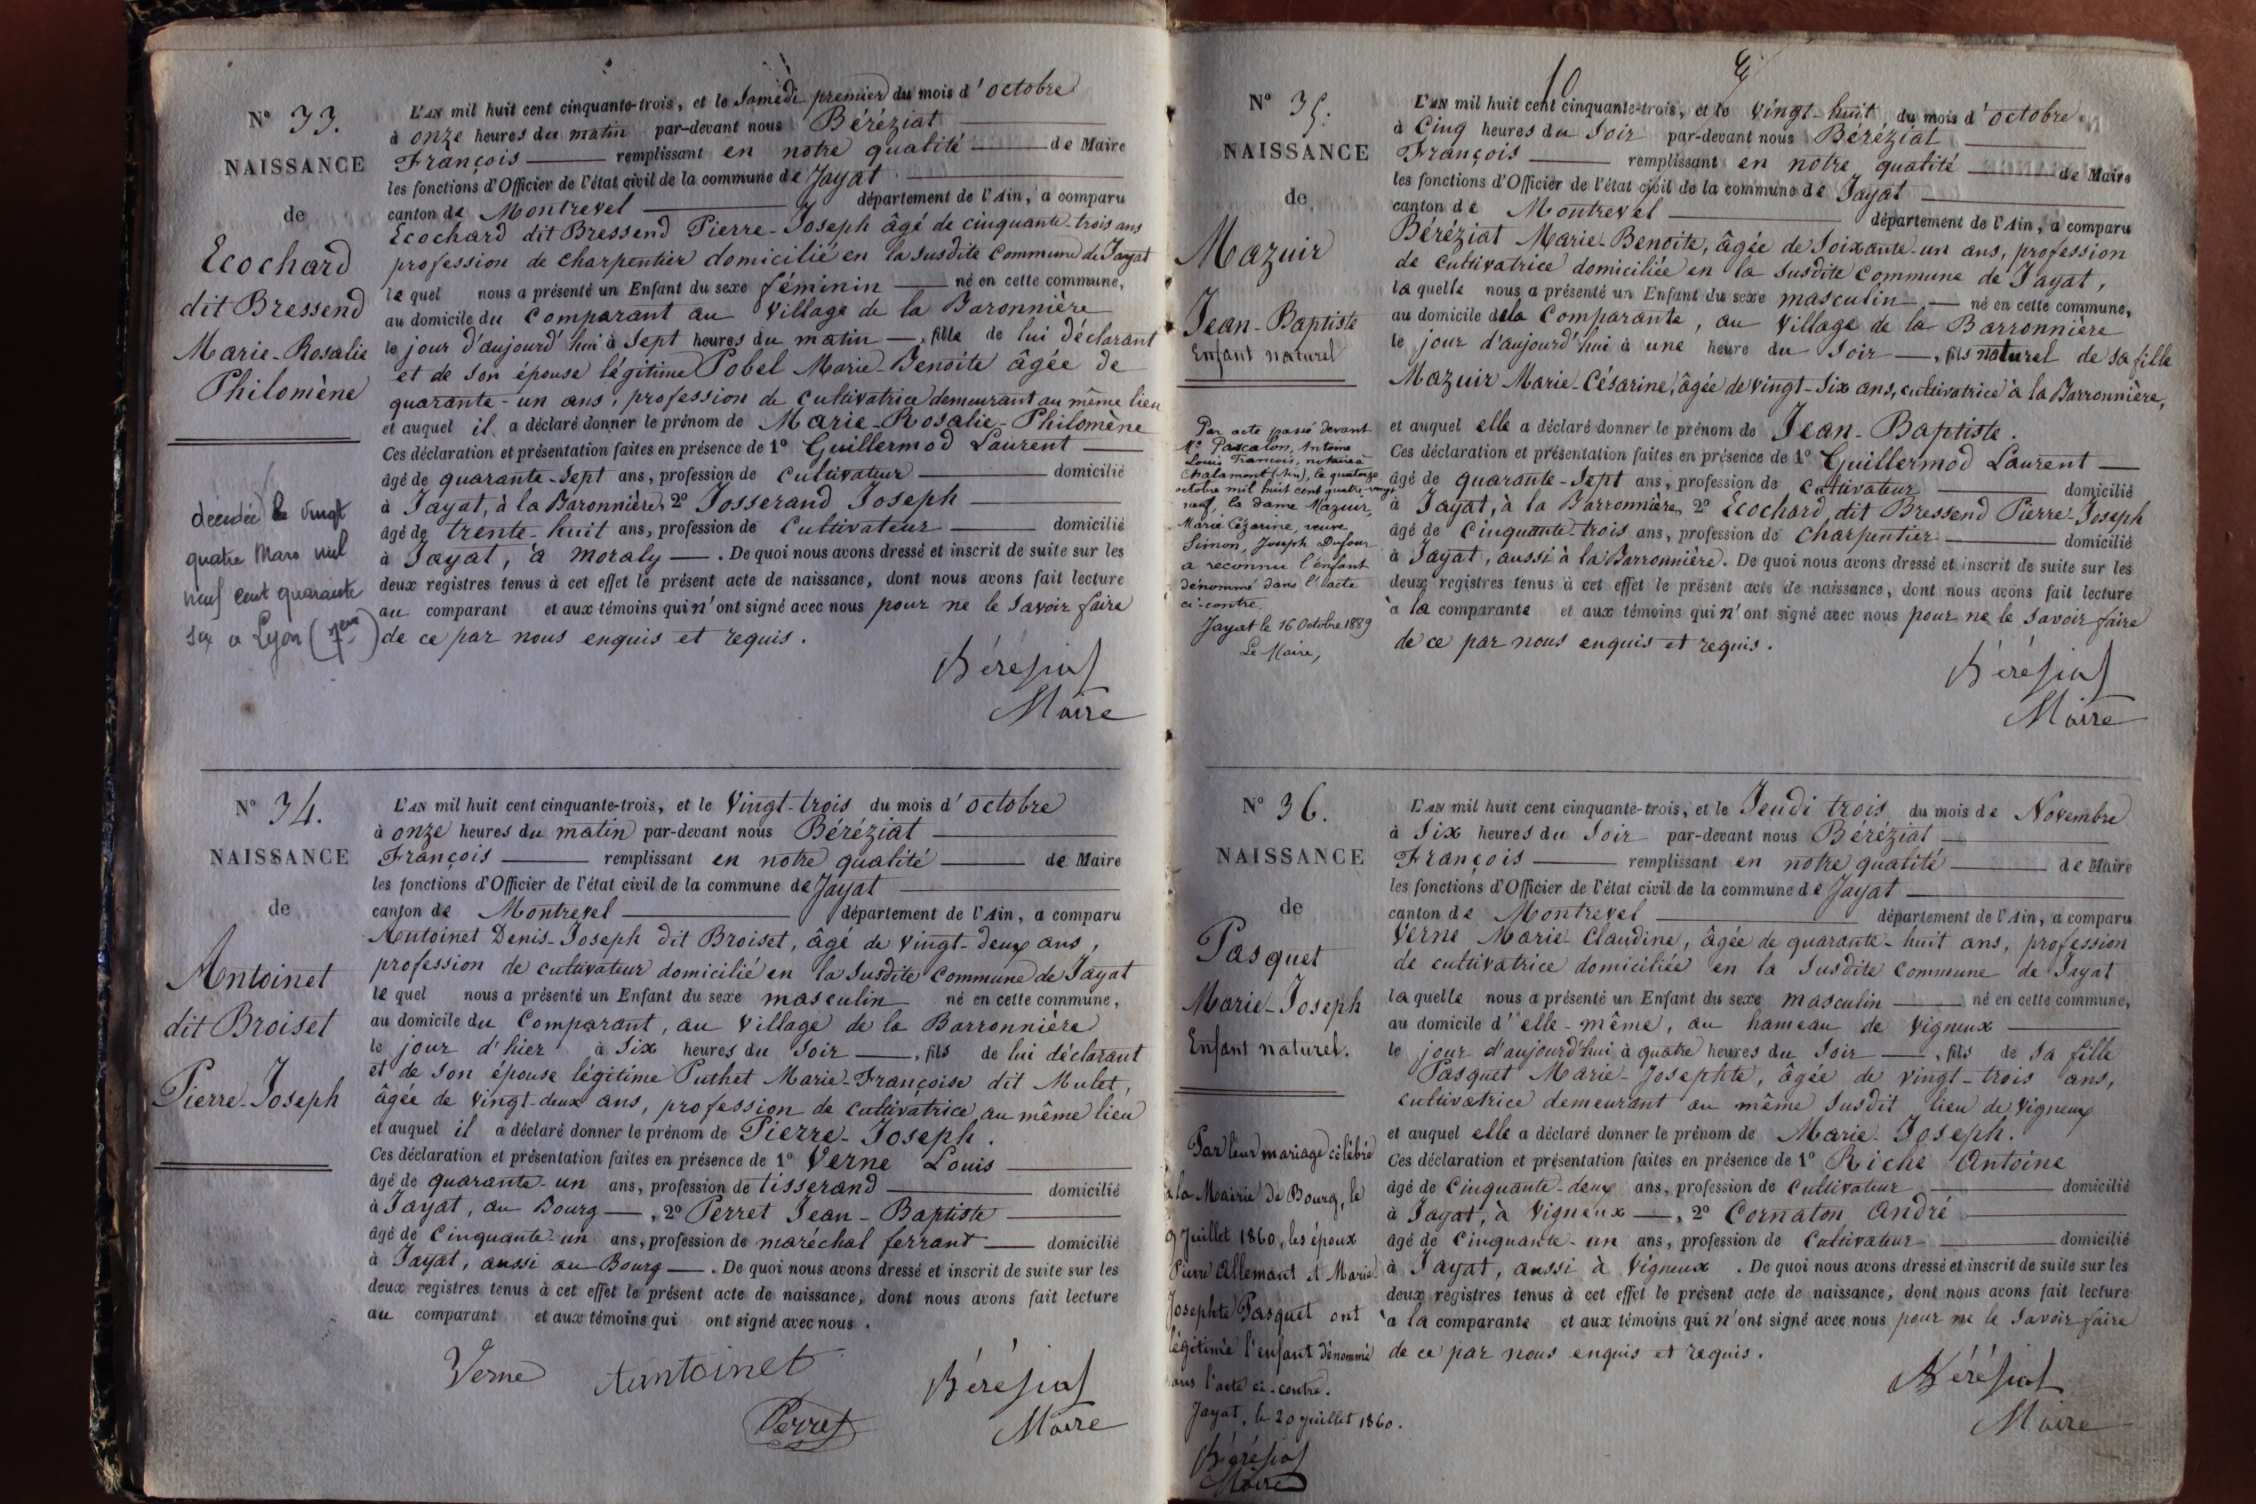 N° 33.
NAISSANCE
de
Ecochard
dit Bressend
Marie-Rosalie
Philomène
décédée le vingt
quatre Mars mil
neuf cent quarante
six à Lyon (7ème)
L'AN mil huit cent cinquante-trois, et le Samedi premier du mois d'octobre
à onze heures du matin par-devant nous Béréziat
François remplissant en notre qualité de Maire
les fonctions d'Officier de l'état civil de la commune de Jayat
canton de Montrevel département de l'Ain, a comparu
Ecochard dit Bressend Pierre-Joseph âgé de cinquante-trois ans
profession de charpentier domicilié en la susdite Commune de Jayat
le quel nous a présenté un Enfant du sexe féminin né en cette commune,
au domicile du Comparant au Village de la Baronnière
le jour d'aujourd'hui à sept heures du matin, fille de lui déclarant
et de son épouse légitime Pobel Marie-Benoite âgée de
quarante-un ans, profession de cultivatrice demeurant au même lieu
et auquel il a déclaré donner le prénom de Marie-Rosalie-Philomène
Ces déclaration et présentation faites en présence de 1° Guillermod Laurent
âgé de quarante-sept ans, profession de cultivateur domicilié
à Jayat, à la Baronnière, 2° Josserand Joseph
âgé de trente-huit ans, profession de Cultivateur domicilié
à Jayat, à Moraly. De quoi nous avons dressé et inscrit de suite sur les
deux registres tenus à cet effet le présent acte de naissance, dont nous avons fait lecture
au comparant et aux témoins qui n'ont signé avec nous pour ne le savoir faire
de ce par nous enquis et requis.
Béréziat
Maire
N° 34.
NAISSANCE
de
Antoinet
dit Broiset
Pierre-Joseph
L'AN mil huit cent cinquante-trois, et le Vingt-trois du mois d'octobre
à onze heures du matin par-devant nous Béréziat
François remplissant en notre qualité de Maire
les fonctions d'Officier de l'état civil de la commune de Jayat
canton de Montrevel département de l'Ain, a comparu
Antoinet Denis-Joseph dit Broiset, âgé de vingt-deux ans,
profession de cultivateur domicilié en la susdite Commune de Jayat
le quel nous a présenté un Enfant du sexe masculin né en cette commune,
au domicile du Comparant, au Village de la Barronnière
le jour d'hier à Six heures du Soir, fils de lui déclarant
et de son épouse légitime Puthet Marie-Françoise dit Mulet,
âgée de vingt-deux ans, profession de cultivatrice au même lieu
et auquel il a déclaré donner le prénom de Pierre-Joseph.
Ces déclaration et présentation faites en présence de 1° Verne Louis
âgé de quarante-un ans, profession de tisserand domicilié
à Jayat, au Bourg, 2° Perret Jean-Baptiste
âgé de Cinquante-un ans, profession de maréchal ferrant domicilié
à Jayat, aussi au Bourg. De quoi nous avons dressé et inscrit de suite sur les
deux registres tenus à cet effet le présent acte de naissance, dont nous avons fait lecture
au comparant et aux témoins qui ont signé avec nous.
Verne Aantoinet Béréziat
Perret Maire
10
N° 35.
NAISSANCE
de
Mazuir
Jean-Baptiste
Enfant naturel
Par acte passé devant
Me Pascalon, Antoine
Louis François, notaire à
Chalamont (Ain), le quatorze
octobre mil huit cent quatre-vingt
neuf, la dame Mazuir,
Marie Cézarine, veuve
Simon, Joseph Dufour
a reconnu l'enfant
dénommé dans l'acte
ci-contre.
Jayat le 16 Octobre 1889
Le Maire,
L'AN mil huit cent cinquante-trois, et le vingt-huit du mois d'octobre
à Cinq heures du Soir par-devant nous Béréziat
François remplissant en notre qualité de Maire
les fonctions d'Officier de l'état civil de la commune de Jayat
canton de Montrevel département de l'Ain, a comparu
Béréziat Marie-Benoite, âgée de Soixante-un ans, profession
de cultivatrice domiciliée en la susdite Commune de Jayat,
la quelle nous a présenté un Enfant du sexe masculin né en cette commune,
au domicile de la Comparante, au Village de la Barronnière
le jour d'aujourd'hui à une heure du Soir, fils naturel de sa fille
Mazuir Marie-Césarine, âgée de vingt-six ans, cultivatrice à la Barronnière,
et auquel elle a déclaré donner le prénom de Jean-Baptiste.
Ces déclaration et présentation faites en présence de 1° Guillermod Laurent
âgé de quarante-sept ans, profession de cultivateur domicilié
à Jayat, à la Barronnière, 2° Ecochard dit Bressend Pierre-Joseph
âgé de Cinquante-trois ans, profession de Charpentier domicilié
à Jayat, aussi à la Barronnière. De quoi nous avons dressé et inscrit de suite sur les
deux registres tenus à cet effet le présent acte de naissance, dont nous avons fait lecture
à la comparante et aux témoins qui n'ont signé avec nous pour ne le savoir faire
de ce par nous enquis et requis.
Béréziat
Maire
N° 36.
NAISSANCE
de
Pasquet
Marie-Joseph
Enfant naturel.
Par leur mariage célébré
à la Mairie de Bourg, le
9 Juillet 1860, les époux
Pierre Allemant et Marie
Josephte Pasquet ont
légitimé l'enfant dénommé
dans l'acte ci-contre.
Jayat, le 20 juillet 1860.
Béréziat
Maire
L'AN mil huit cent cinquante-trois, et le Jeudi trois du mois de Novembre
à Six heures du Soir par-devant nous Béréziat
François remplissant en notre qualité de Maire
les fonctions d'Officier de l'état civil de la commune de Jayat
canton de Montrevel département de l'Ain, a comparu
Verne Marie Claudine, âgée de quarante-huit ans, profession
de cultivatrice domiciliée en la susdite commune de Jayat
la quelle nous a présenté un Enfant du sexe masculin né en cette commune,
au domicile d'elle-même, au hameau de Vigneux
le jour d'aujourd'hui à quatre heures du Soir, fils de sa fille
Pasquet Marie-Josephte, âgée de vingt-trois ans,
cultivatrice demeurant au même susdit lieu de Vigneux
et auquel elle a déclaré donner le prénom de Marie-Joseph.
Ces déclaration et présentation faites en présence de 1° Riche Antoine
âgé de Cinquante-deux ans, profession de Cultivateur domicilié
à Jayat, à Vigneux, 2° Cornaton André
âgé de Cinquante-un ans, profession de Cultivateur domicilié
à Jayat, aussi à Vigneux. De quoi nous avons dressé et inscrit de suite sur les
deux registres tenus à cet effet le présent acte de naissance, dont nous avons fait lecture
à la comparante et aux témoins qui n'ont signé avec nous pour ne le savoir faire
de ce par nous enquis et requis.
Béréziat
Maire